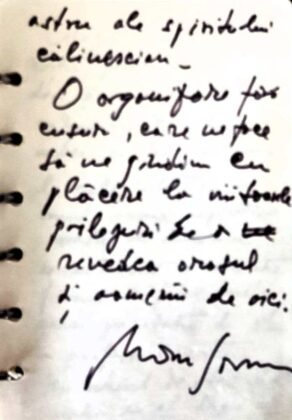 astru ale spiritului
călinescian_
O organizare fără
cusur, care ne face
să ne gîndim cu
plăcere la viitoarele
prilejuri de a
revedea orașul
și oamenii de aici.